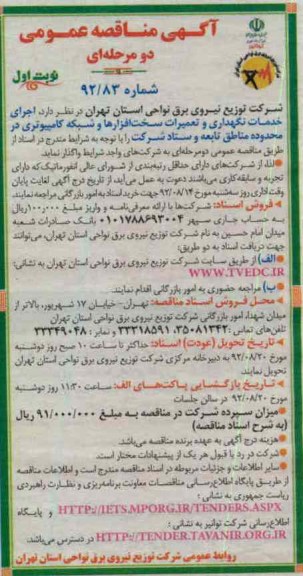 آگهی مناقصه عمومی
دو مرحله‌ای
نوبت اول
شماره ۹۲/۸۳
شرکت توزیع نیروی برق نواحی استان تهران در نظر دارد، اجرای
خدمات نگهداری و تعمیرات سخت‌افزارها و شبکه کامپیوتری در
محدوده مناطق تابعه و ستاد شرکت را با توجه به شرایط مندرج در اسناد از
طریق مناقصه عمومی دومرحله‌ای به شرکت‌های واجد شرایط واگذار نماید.
لذا، از شرکت‌های دارای حداقل رتبه‌بندی از شورای عالی انفورماتیک که دارای
تجربه و سابقه کاری می‌باشند دعوت به عمل می‌آید، از تاریخ درج آگهی لغایت پایان
وقت اداری روز سه‌شنبه مورخ ۹۲/۰۸/۱۴ جهت خرید اسناد به امور بازرگانی مراجعه نمایند.
فروش اسناد: شرکت‌ها با ارائه معرفی‌نامه و واریز مبلغ ۱۰۰,۰۰۰ ریال
به حساب جاری سپهر ۰۱۰۱۷۸۸۶۹۳۰۰۴ بانک صادرات شعبه
میدان امام حسین به نام شرکت توزیع نیروی برق نواحی استان تهران، می‌توانند
جهت دریافت اسناد به دو طریق:
الف) از طریق سایت شرکت توزیع نیروی برق نواحی استان تهران به نشانی:
WWW.TVEDC.IR
ب) مراجعه حضوری به امور بازرگانی اقدام نمایند.
محل فروش اسناد مناقصه: تهران-خیابان ۱۷ شهریور، بالاتر از
میدان شهدا، امور بازرگانی شرکت توزیع نیروی برق نواحی استان تهران
تلفن‌های تماس: ۳۵۰۸۱۳۴۲، ۳۳۲۱۸۵۹۱ و نمابر: ۳۳۳۴۹۰۴۸
تاریخ تحویل (عودت) اسناد: حداکثر تا ساعت ۱۰ صبح روز دوشنبه
مورخ ۹۲/۰۸/۲۰ به دبیرخانه مرکزی شرکت توزیع نیروی برق نواحی استان تهران
تحویل نمایند.
تاریخ بازگشایی پاکت‌های الف: ساعت ۱۱:۳۰ روز دوشنبه
مورخ ۹۲/۰۸/۲۰ در سالن جلسات
میزان سپرده شرکت در مناقصه به مبلغ ۹۱/۰۰۰/۰۰۰ ریال
(به شرح اسناد مناقصه)
هزینه درج آگهی به عهده برنده مناقصه می‌باشد.
شرکت در رد یا قبول هر یک از پیشنهادات مختار است.
سایر اطلاعات و جزئیات مربوطه در اسناد مناقصه مندرج است و اطلاعات مناقصه
از طریق پایگاه اطلاع‌رسانی مناقصات معاونت برنامه‌ریزی و نظارت راهبردی
ریاست جمهوری به نشانی:
HTTP://IETS.MPORG.IR/TENDERS.ASPX و پایگاه
اطلاع‌رسانی شرکت توانیر به نشانی:
HTTP://TENDER.TAVANIR.ORG.IR در دسترس می‌باشد.
روابط عمومی شرکت توزیع نیروی برق نواحی استان تهران